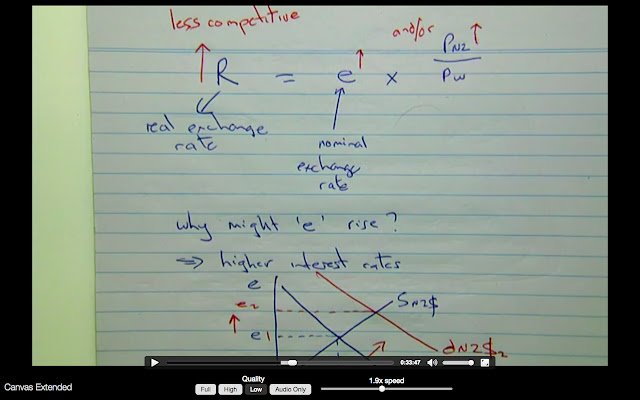 less competitive
and/or
R = e × PNZ
PW
real exchange
rate
nominal
exchange
rate
why might 'e' rise?
⇒ higher interest rates
e
SNZ$
e2
e1
dNZ$2
0:33:47
Canvas Extended
Quality
Full High Low Audio Only
1.9x speed